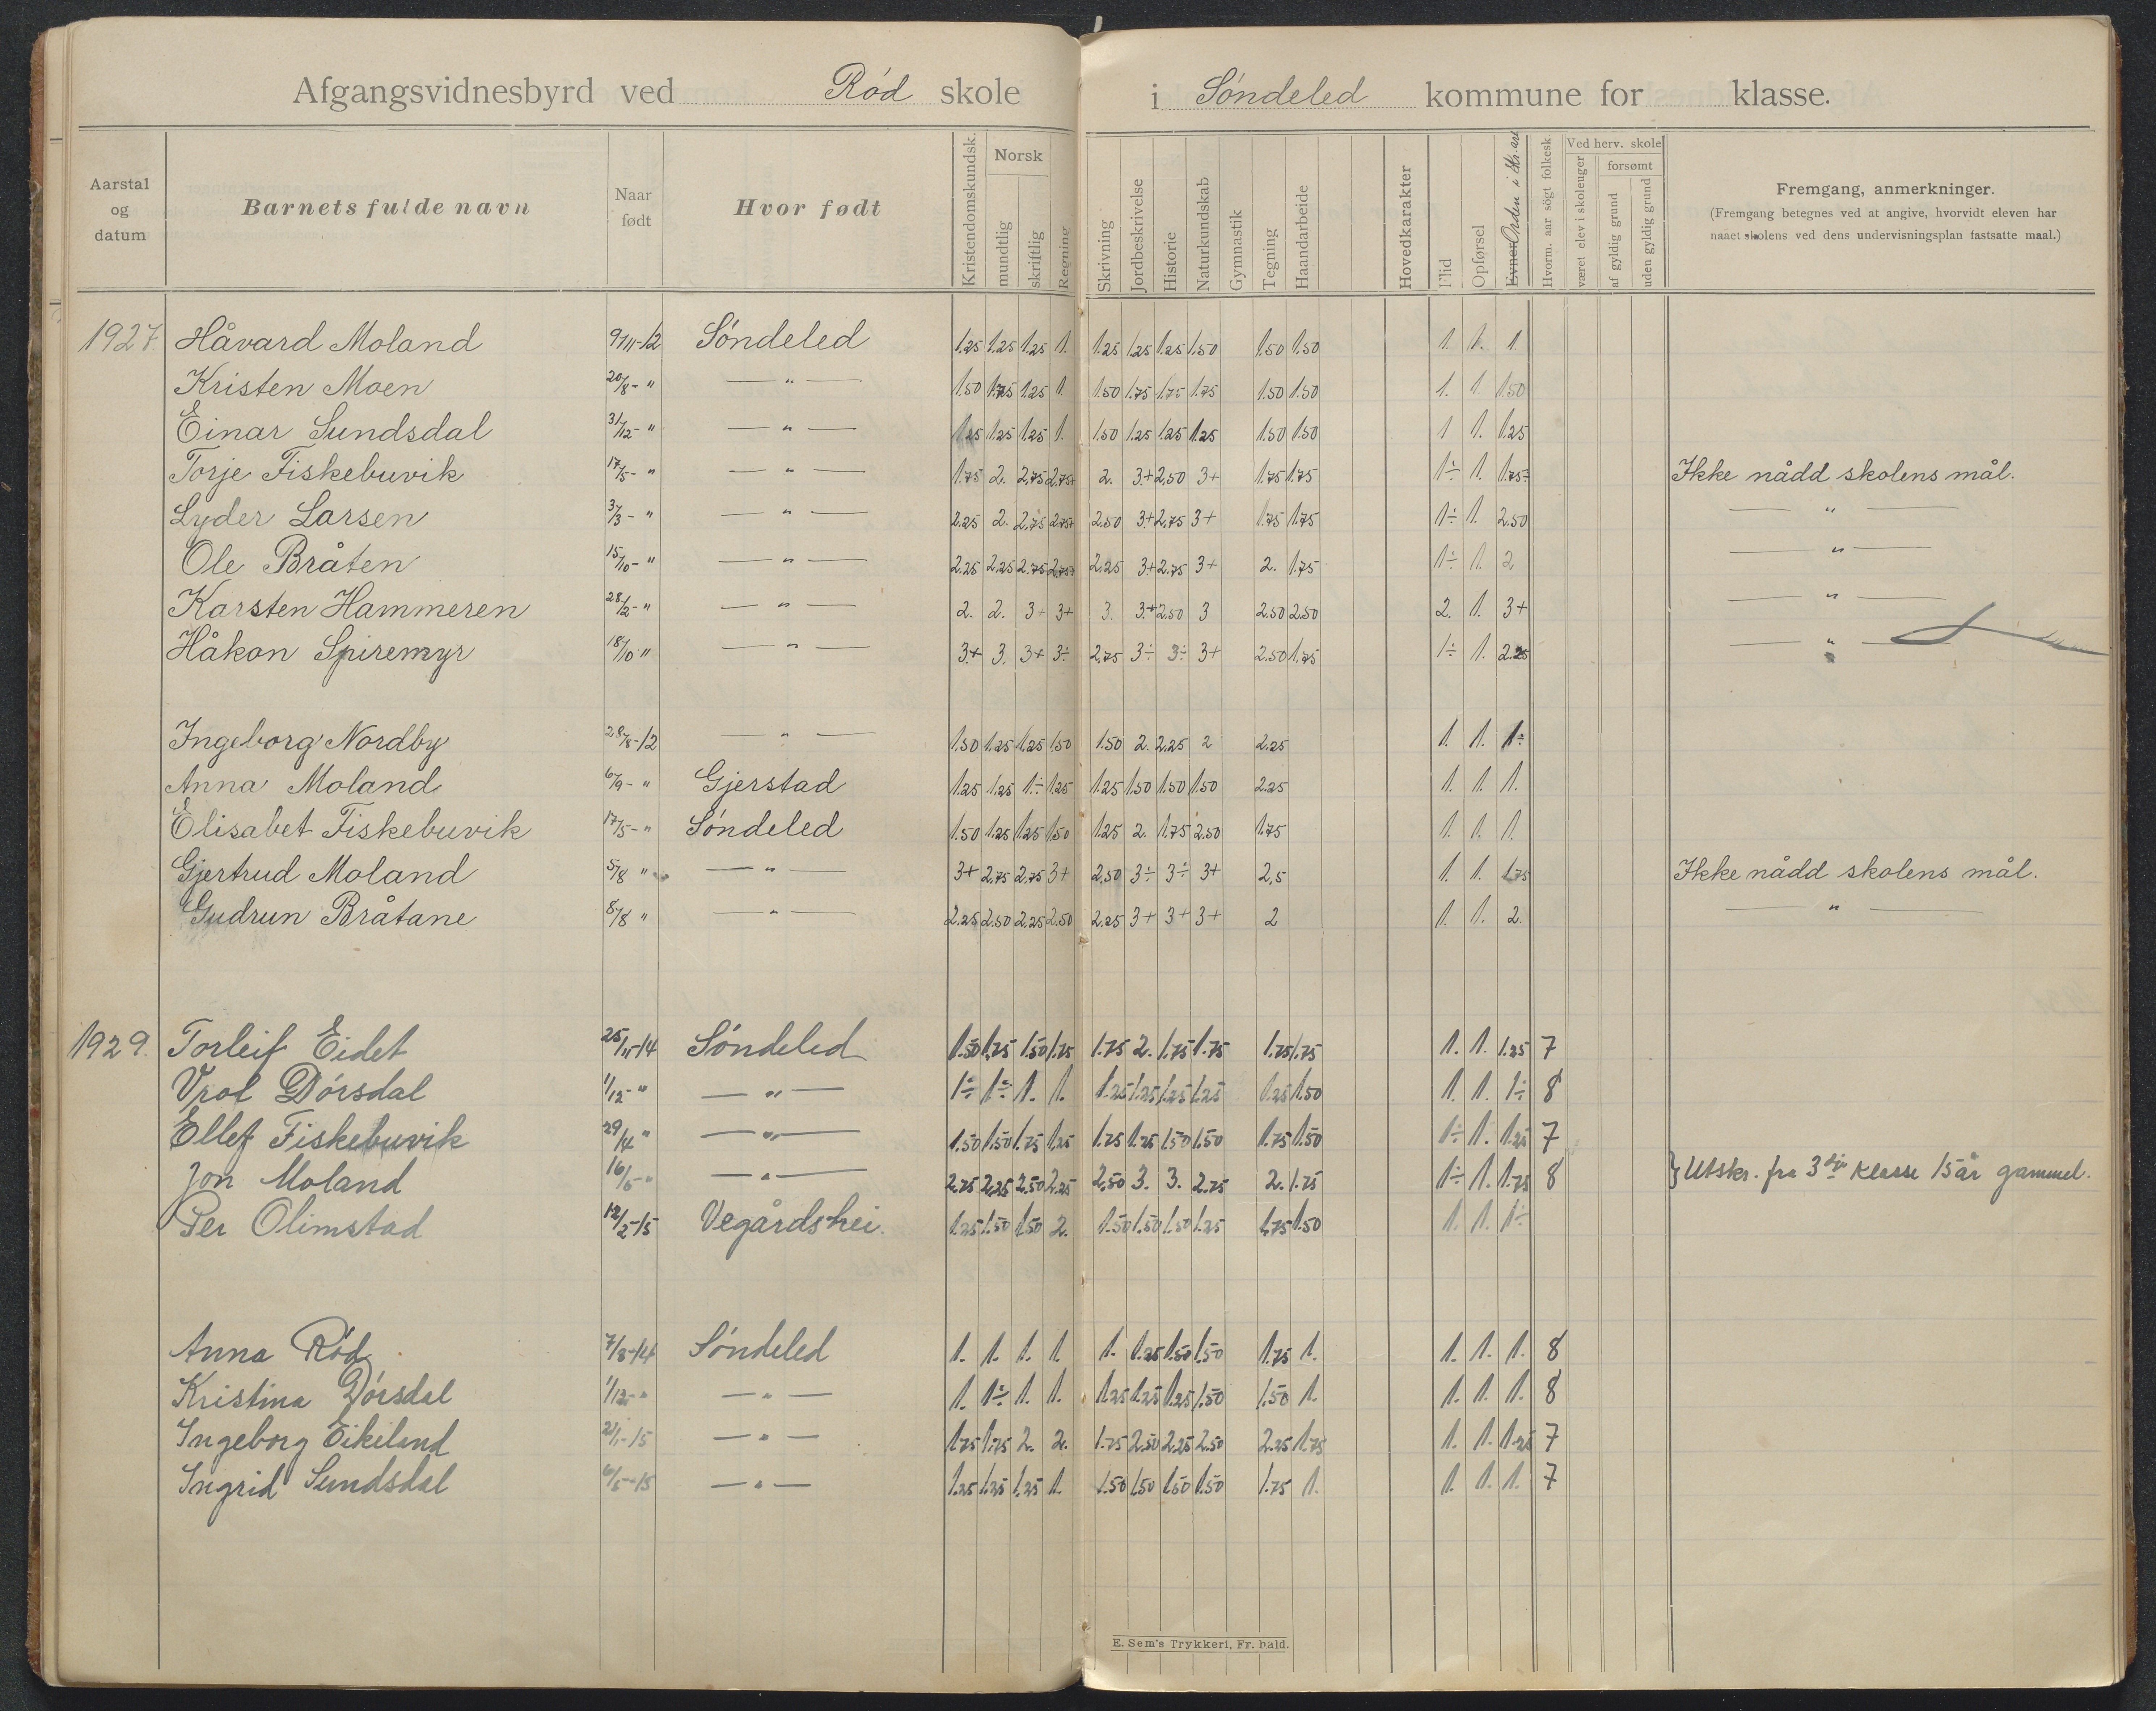 Afgangsvidnesbyrd ved Rød skole i Søndeled kommune for klasse.
Aarstal og datum | Barnets fulde navn | Naar født | Hvor født | Kristendomskundsk. | Norsk mundtlig | skriftlig | Regning | Skrivning | Jordbeskrivelse | Historie | Naturkundskab | Gymnastik | Tegning | Haandarbeide | Hovedkarakter | Flid | Opførsel | Evner Orden i | Hvorm. aar søgt folkesk | Ved herv. skole været elev i skoleuger | forsømt af gyldig grund | uden gyldig grund | Fremgang, anmerkninger.
(Fremgang betegnes ved at angive, hvorvidt eleven har
naaet skolens ved dens undervisningsplan fastsatte maal.)
1927 Håvard Moland 9/11-12 Søndeled 1.25 1.25 1.25 1. 1.25 1.25 1.25 1.50 1.50 1.50 1. 1. 1.
Kristen Moen 20/8- " — " — 1.50 1.75 1.25 1 1.50 1.75 1.75 1.75 1.50 1.50 1. 1 1.50
Einar Sundsdal 31/12- " — " — 1.25 1.25 1.25 1. 1.50 1.25 1.25 1.25 1.50 1.50 1 1. 1.25
Torje Fiskebuvik 17/5- " — " — 1.75 2. 2.75 2.75+ 2. 3+ 2.50 3+ 1.75 1.75 1÷ 1. 1.75÷ Ikke nådd skolens mål.
Lyder Larsen 3/3- " — " — 2.25 2. 2.75 2.75+ 2.50 3+ 2.75 3+ 1.75 1.75 1÷ 1. 2.50 — " —
Ole Bråten 15/10- " — " — 2.25 2.25 2.75 2.75+ 2.25 3+ 2.75 3+ 2. 1.75 1÷ 1. 2 — " —
Karsten Hammeren 28/2- " — " — 2. 2. 3+ 3+ 3. 3+ 2.50 3 2.50 2.50 2. 1. 3+ — " —
Håkon Spiremyr 18/10 " — " — 3+ 3. 3+ 3÷ 2.75 3÷ 3÷ 3+ 2.50 1.75 1÷ 1. 2.25 — " —
Ingeborg Nordby 28/8-12 — " — 1.50 1.25 1.25 1.50 1.50 2. 2.25 2 2.25 1. 1. 1÷
Anna Moland 6/9- " Gjerstad 1.25 1.25 1÷ 1.25 1.25 1.50 1.50 1.50 2.25 1. 1. 1.
Elisabet Fiskebuvik 17/5- " Søndeled 1.50 1.25 1.25 1.50 1.25 2. 1.75 2.50 1.75 1. 1. 1.
Gjertrud Moland 5/8 " — " — 3+ 2.75 2.75 3+ 2.50 3÷ 3÷ 3+ 2,5 1. 1. 1.75 Ikke nådd skolens mål.
Gudrun Bråtane 8/8 " — " — 2.25 2.50 2.25 2.50 2.25 3+ 3+ 3+ 2 1. 1. 2. — " —
1929. Torleif Eidet 25/11-14 Søndeled 1.50 1.75 1.50 1.25 1.75 2. 1.75 1.75 1.75 1.75 1. 1. 1.25 7
Vrol Dørsdal 1/12- " — " — 1÷ 1÷ 1. 1. 1.25 1.25 1.25 1.25 1.25 1.50 1. 1. 1÷ 8
Ellef Fiskebuvik 29/4 " — " — 1.50 1.50 1.75 1.25 1.75 1.25 1.50 1.50 1.75 1.50 1÷ 1. 1.25 7
Jon Moland 16/5- " — " — 2.75 2.25 2.50 2.25 2.50 3. 3. 2.75 2. 1.75 1÷ 1. 1.75 8 } Utskr. fra 3dje klasse 15 år gammel.
Per Olimstad 12/2-15 Vegårdshei. 1.25 1.50 1.50 2. 1.50 1.50 1.50 1.25 1.75 1.50 1. 1. 1÷
Anna Rød 7/8-14 Søndeled 1. 1. 1. 1. 1. 1.25 1.50 1.50 1.75 1. 1. 1. 1. 8
Kristina Dørsdal 1/12- " — " — 1. 1÷ 1. 1. 1.25 1.25 1.25 1.50 1.50 1. 1. 1. 1. 8
Ingeborg Eikeland 21/1-15 — " — 1.75 1.75 2. 2. 1.75 2.50 2.25 2.50 2.25 1.75 1. 1. 1.25 7
Ingrid Sundsdal 6/5-15 — " — 1.25 1.25 1.25 1. 1.50 1.50 1.50 1.50 1.75 1. 1. 1. 1. 7
E. Sem's Trykkeri, Fr. hald.